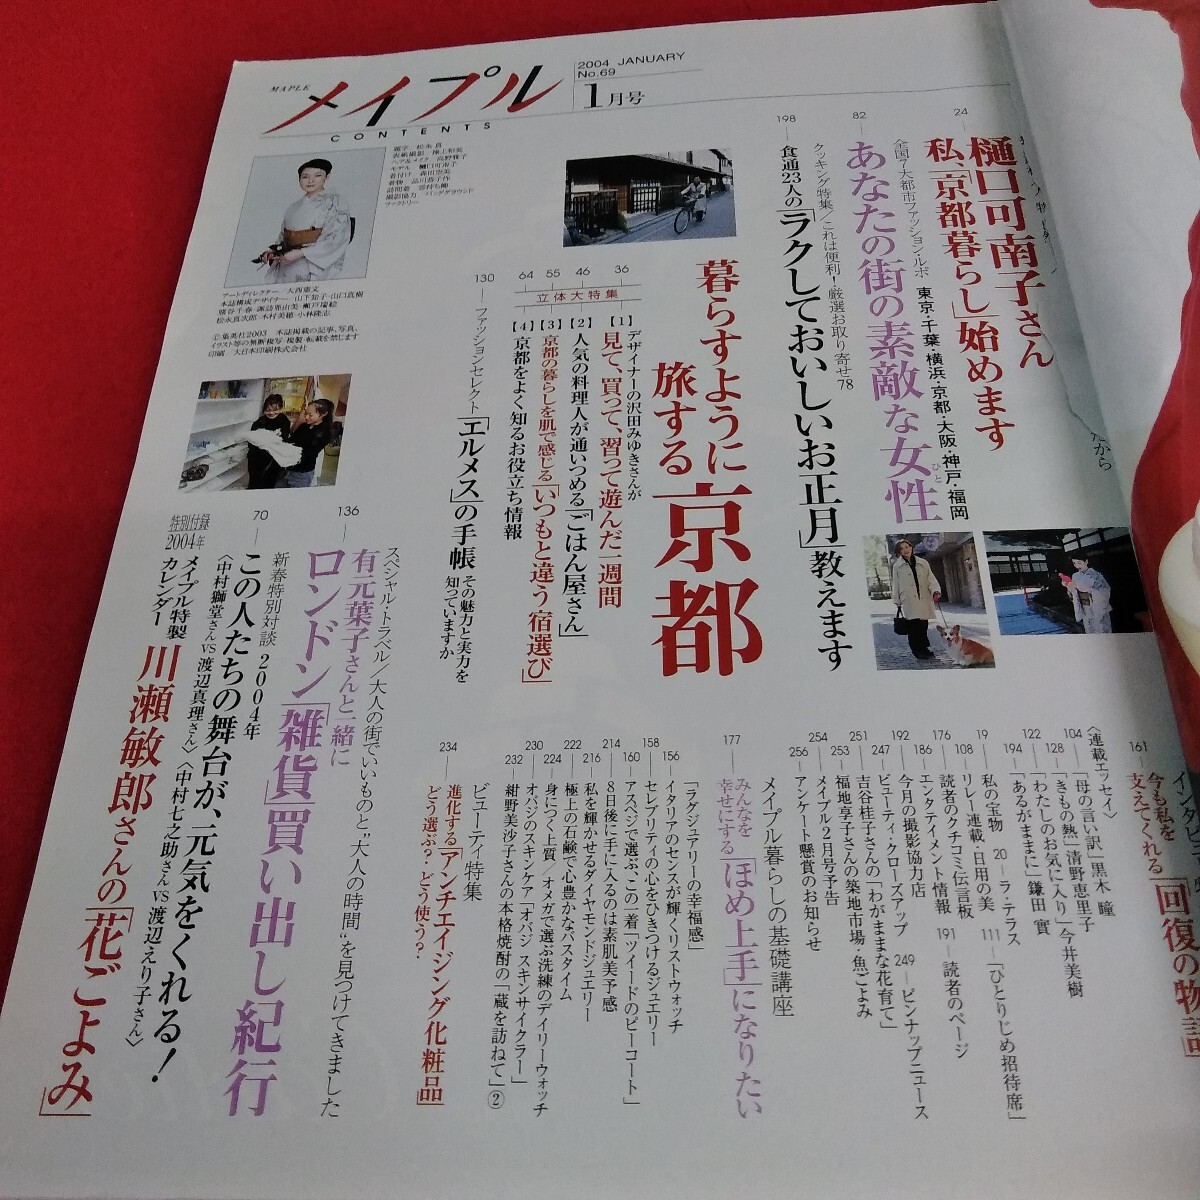 MAPLE
メイプル
CONTENTS
2004 JANUARY
No.69
1月号
24
樋口可南子さん
私、「京都暮らし」始めます
82
全国7大都市ファッション・ルポ 東京・千葉・横浜・京都・大阪・神戸・福岡
あなたの街の素敵な女性
ひと
198
クッキング特集/これは便利!厳選お取り寄せ78
食通23人の「ラクしておいしいお正月」教えます
暮らすように
旅する京都
立体大特集
36
【1】デザイナーの沢田みゆきさんが
見て、買って、習って遊んだ一週間
46
【2】人気の料理人が通いつめる「ごはん屋さん」
55
【3】京都の暮らしを肌で感じる「いつもと違う宿選び」
64
【4】京都をよく知るお役立ち情報
130
ファッションセレクト「エルメス」の手帳 その魅力と実力を
知っていますか
136
スペシャル・トラベル/大人の街でいいものと"大人の時間"を見つけてきました
有元葉子さんと一緒に
ロンドン「雑貨」買い出し紀行
70
新春特別対談 2004年
この人たちの舞台が、元気をくれる!
〈中村獅童さんvs渡辺真理さん〉〈中村七之助さんvs渡辺えり子さん〉
特別付録
2004年
メイプル特製
カレンダー
川瀬敏郎さんの「花ごよみ」
アートディレクター 大西憲文
©集英社2003 本誌掲載の記事、写真、
イラスト等の無断複写・複製・転載を禁じます
印刷 大日本印刷株式会社
161
今も私を
支えてくれる「回復の物語
〈連載エッセイ〉
104
「母の言い訳」黒木 瞳
128
「きもの熱」清野恵里子
122
「わたしのお気に入り」今井美樹
194
「あるがままに」鎌田 實
19
私の宝物
20
ラ・テラス
108
リレー連載・日用の美
111
「ひとりじめ招待席」
176
読者のクチコミ伝言板
191
読者のページ
186
エンタテイメント情報
192
今月の撮影協力店
247
ビューティ・クローズアップ
249
ピンナップニュース
251
吉谷桂子さんの「わがままな花育て」
253
福地享子さんの築地市場・魚ごよみ
254
メイプル2月号予告
256
アンケート懸賞のお知らせ
177
メイプル暮らしの基礎講座
みんなを
幸せにする「ほめ上手」になりたい
「ラグジュアリーの幸福感」
156
イタリアのセンスが輝くリストウォッチ
158
セレブリティの心をひきつけるジュエリー
160
アスペジで選ぶ、この一着「ツイードのピーコート」
214
8日後に手に入るのは素肌美予感
216
私を輝かせるダイヤモンドジュエリー
222
極上の石鹸で心豊かなバスタイム
224
身につく上質/オメガで選ぶ洗練のデイリーウォッチ
230
オバジのスキンケア「オバジ スキンサイクラー」
232
紺野美沙子さんの本格焼酎の「蔵を訪ねて」②
234
ビューティ特集
進化する「アンチエイジング化粧品」
どう選ぶ?・どう使う?
だから